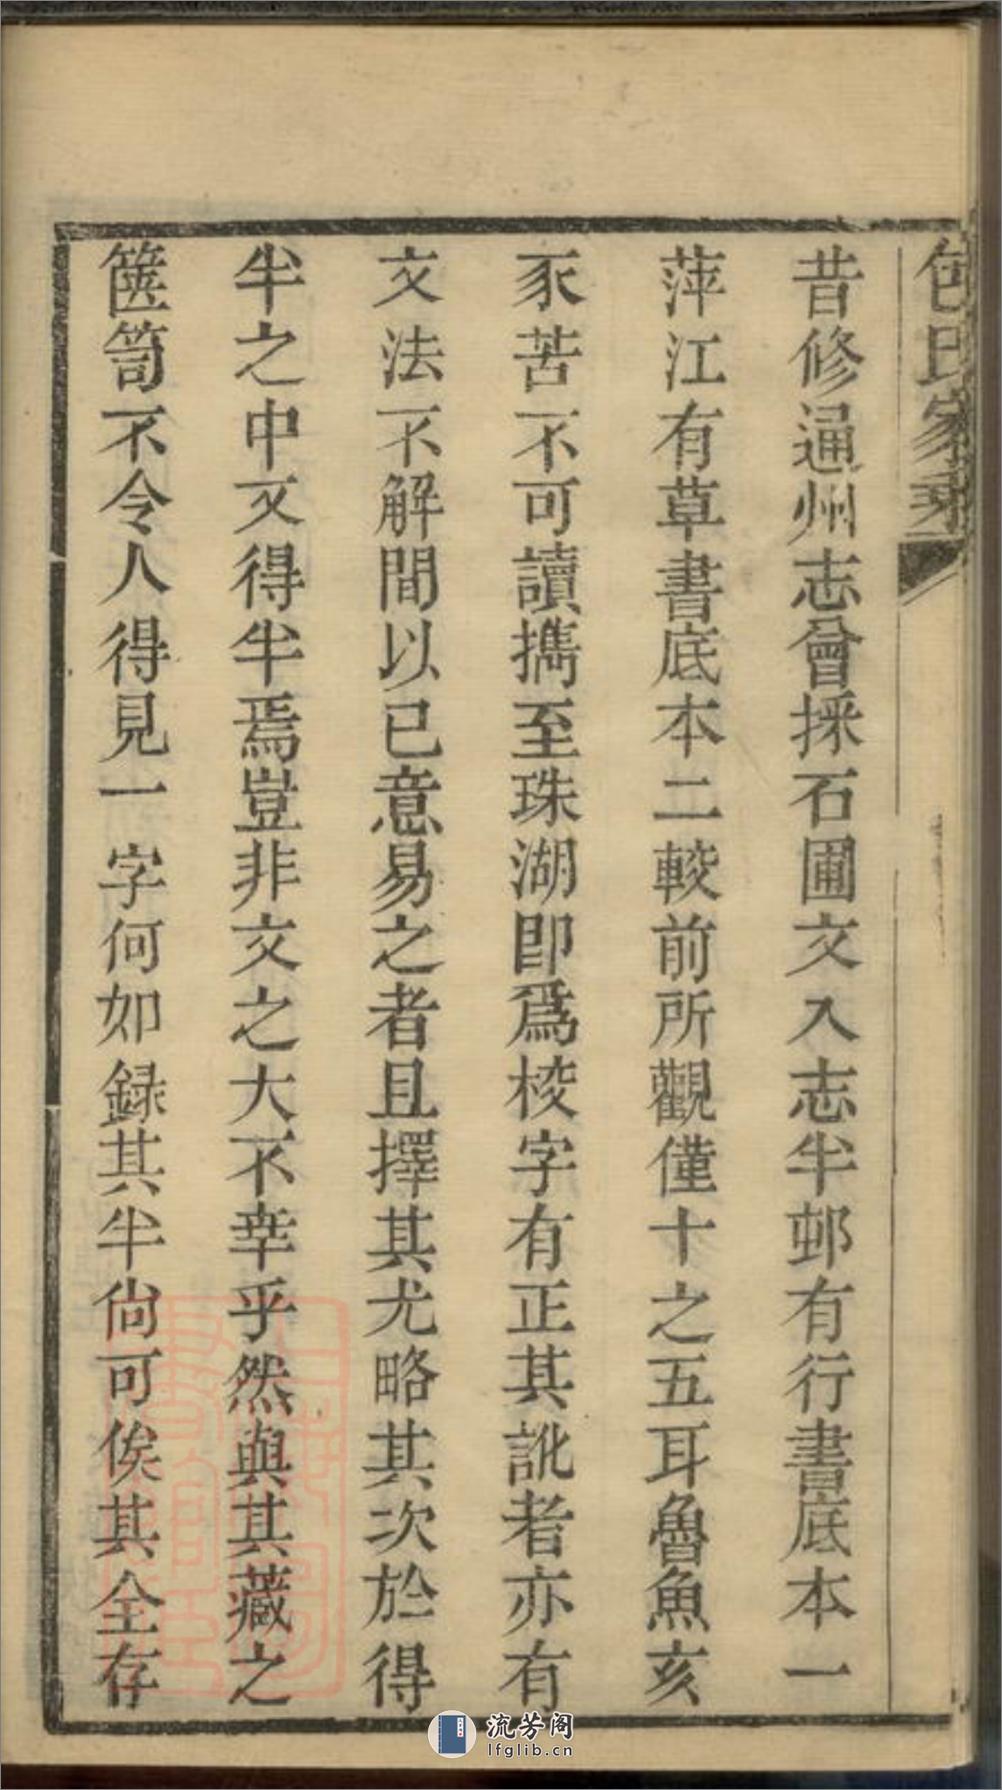 包氏家乘
昔修通州志曾採石圃文入志半邨有行書底本一
萍江有草書底本二較前所觀僅十之五耳魯魚亥
豕苦不可讀攜至珠湖即爲校字有正其訛者亦有
文法不解間以已意易之者且擇其尤略其次於得
半之中又得半焉豈非文之大不幸乎然與其藏之
篋笥不令人得見一字何如録其半尙可俟其全存
流芳阁
lfglib.cn